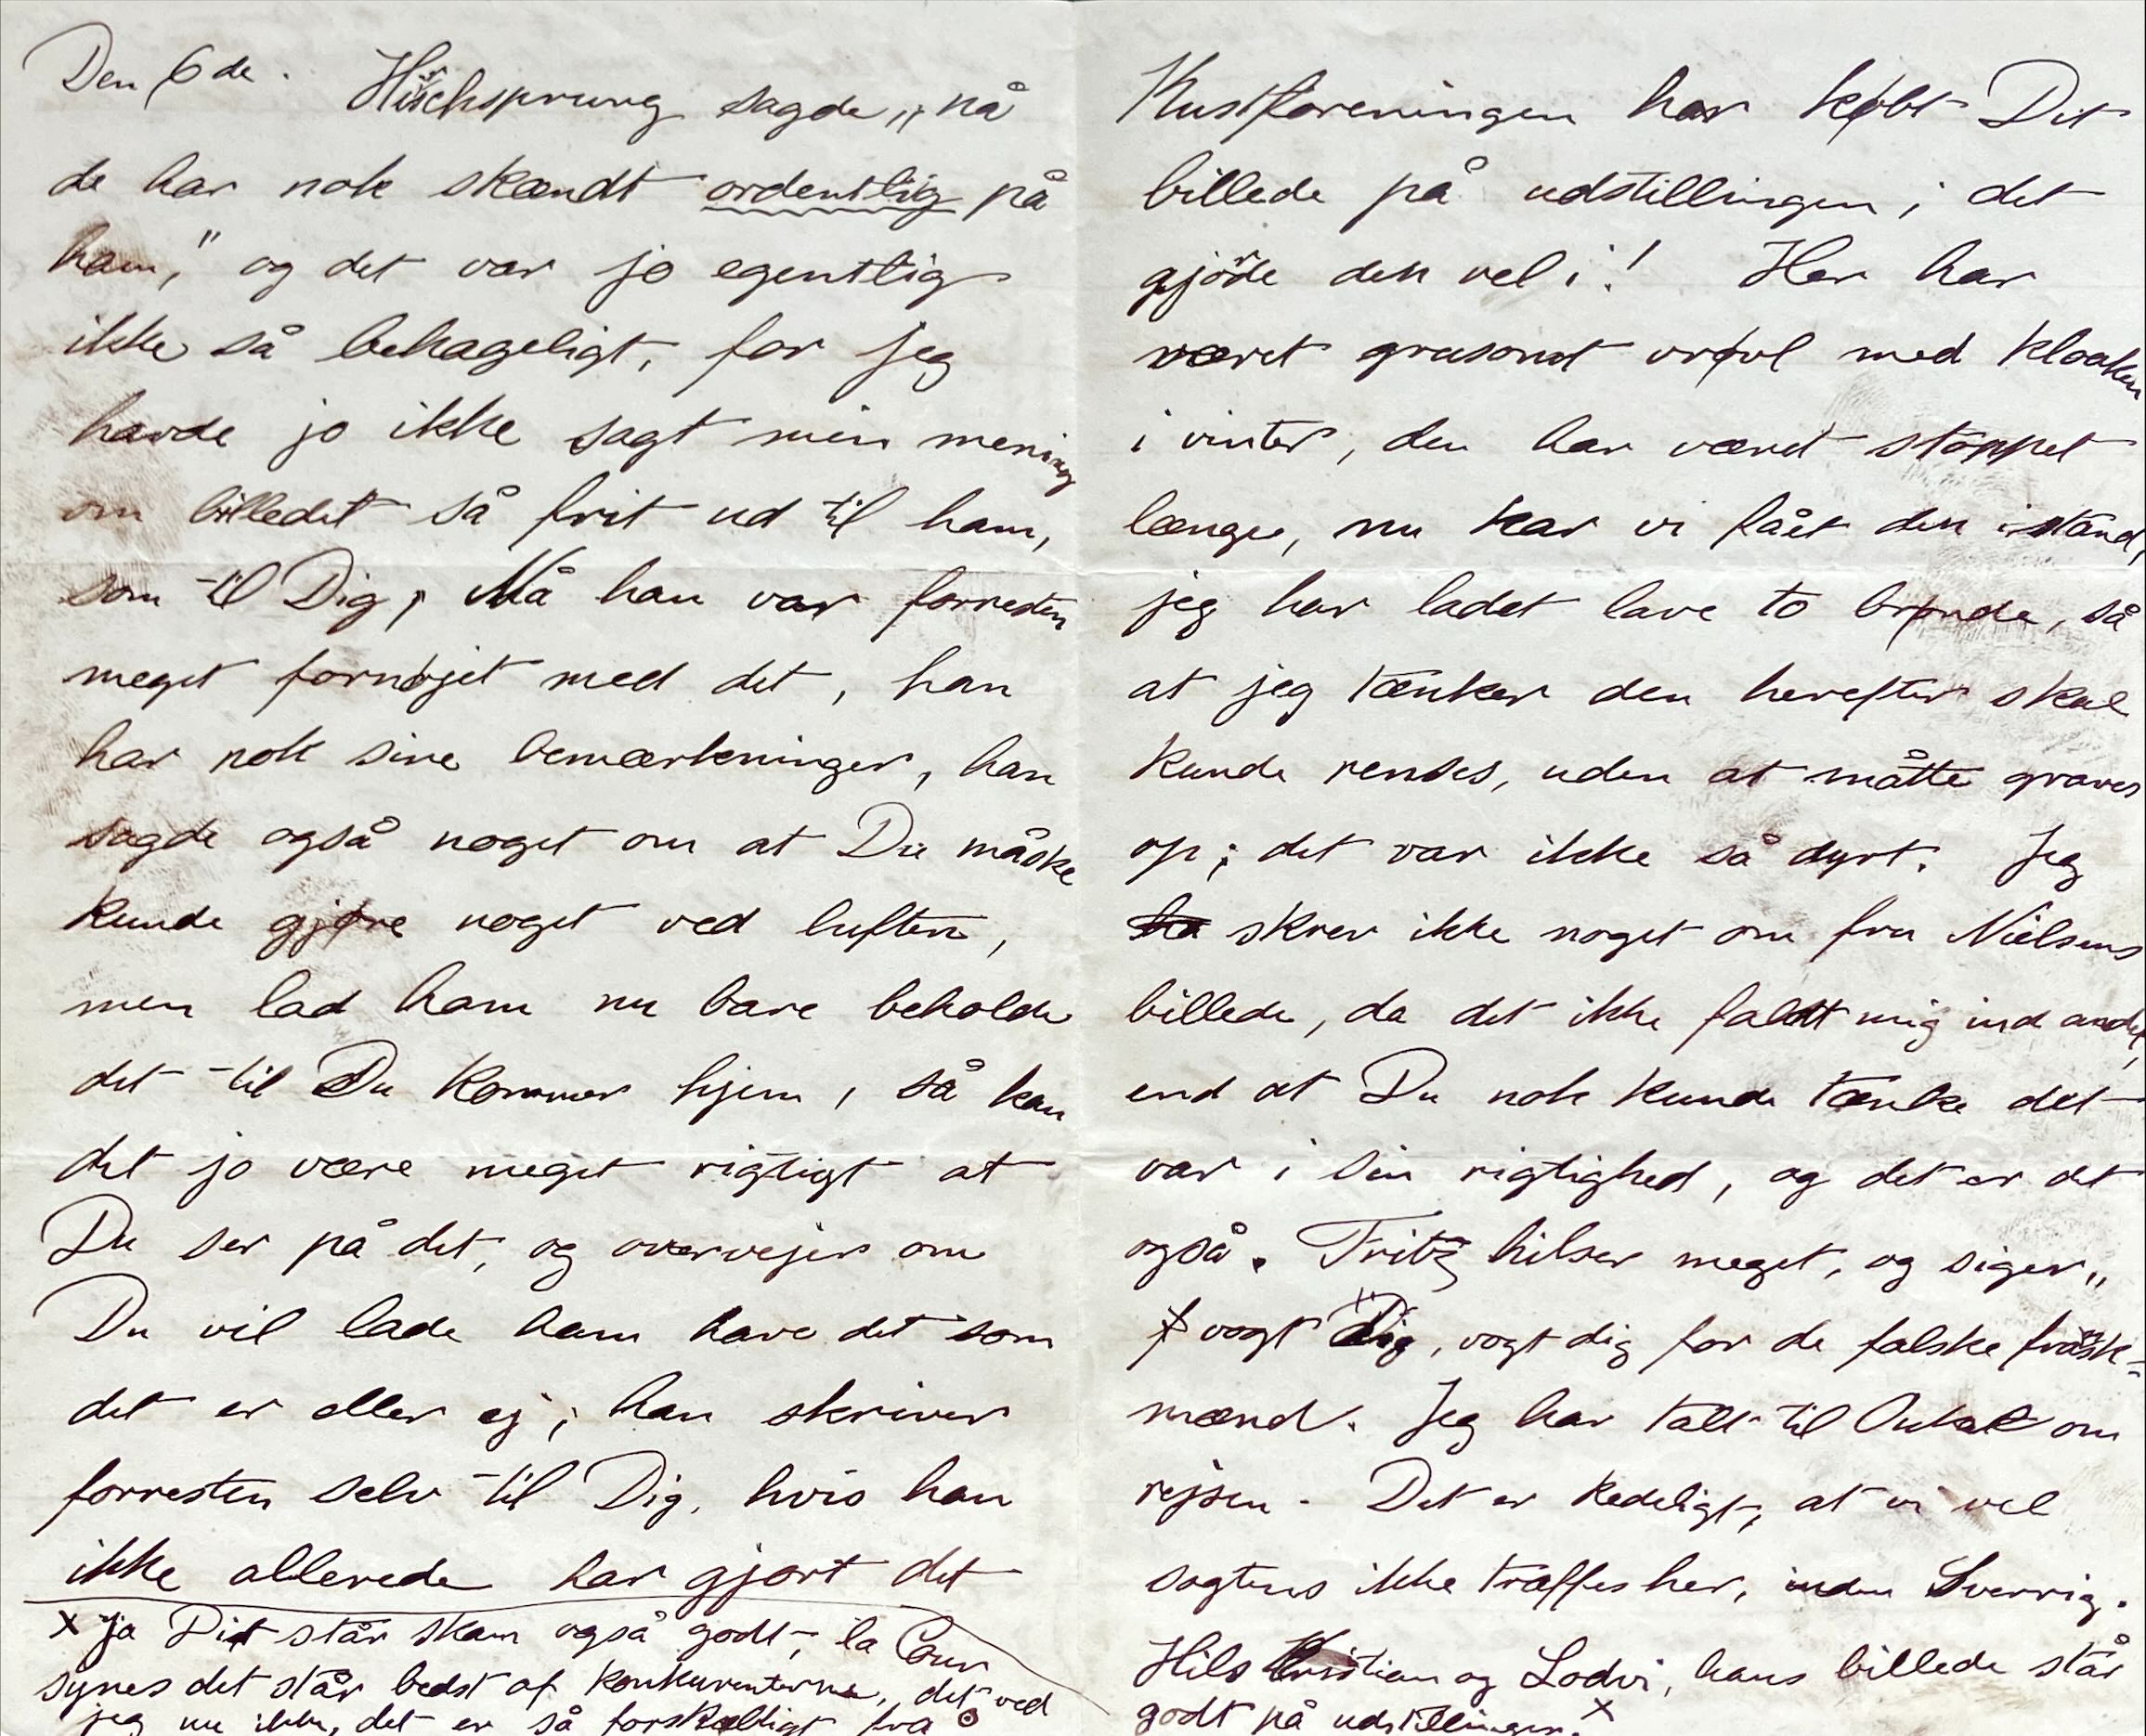 Den 6de. Hirschsprung sagde „nå
de har nok skændt ordentlig på
ham,“ og det var jo egentlig
ikke så behageligt, for jeg
havde jo ikke sagt min mening
om billedet så frit ud til ham,
som til Dig, Nå han var forresten
meget fornøjet med det, han
har nok sine bemærkninger, han
sagde også noget om at Du måske
kunde gjøre noget ved luften,
men lad ham nu bare beholde
det til Du kommer hjem, så kan
det jo være meget rigtigt at
Du ser på det, og overvejer om
Du vil lade ham have det som
det er eller ej; han skriver
forresten selv til Dig, hvis han
ikke allerede har gjort det
x ja Dit står skam også godt, la Cour
synes det står bedst af konkurenterne, det ved
jeg nu ikke, det er så forskelligt fra
Kustforeningen har købt Dit
billede på udstillingen, det
gjörde den vel i! Her har
været grusomt vrøvl med kloaken
i vinter, den har været stoppet
længe, nu har vi fået den istand,
jeg har ladet lave to brønde, så
at jeg tænker den herefter skal
kunde renses, uden at måtte graves
op; det var ikke så dyrt. Jeg
skrev ikke noget om fru Nielsens
billede, da det ikke faldt mig ind andet,
end at Du nok kunde tænke det
var i sin rigtighed, og det er det
også. Fritz hilser meget, og siger„
vogt Dig, vogt dig for de falske fransk=
mænd. Jeg har talt til Onkel om
rejsen. Det er kedeligt, at vi vel
sagtens ikke træffes her, inden Sverrig.
Hils Kristian og Lodvi, hans billede står
godt på udstillingen. x